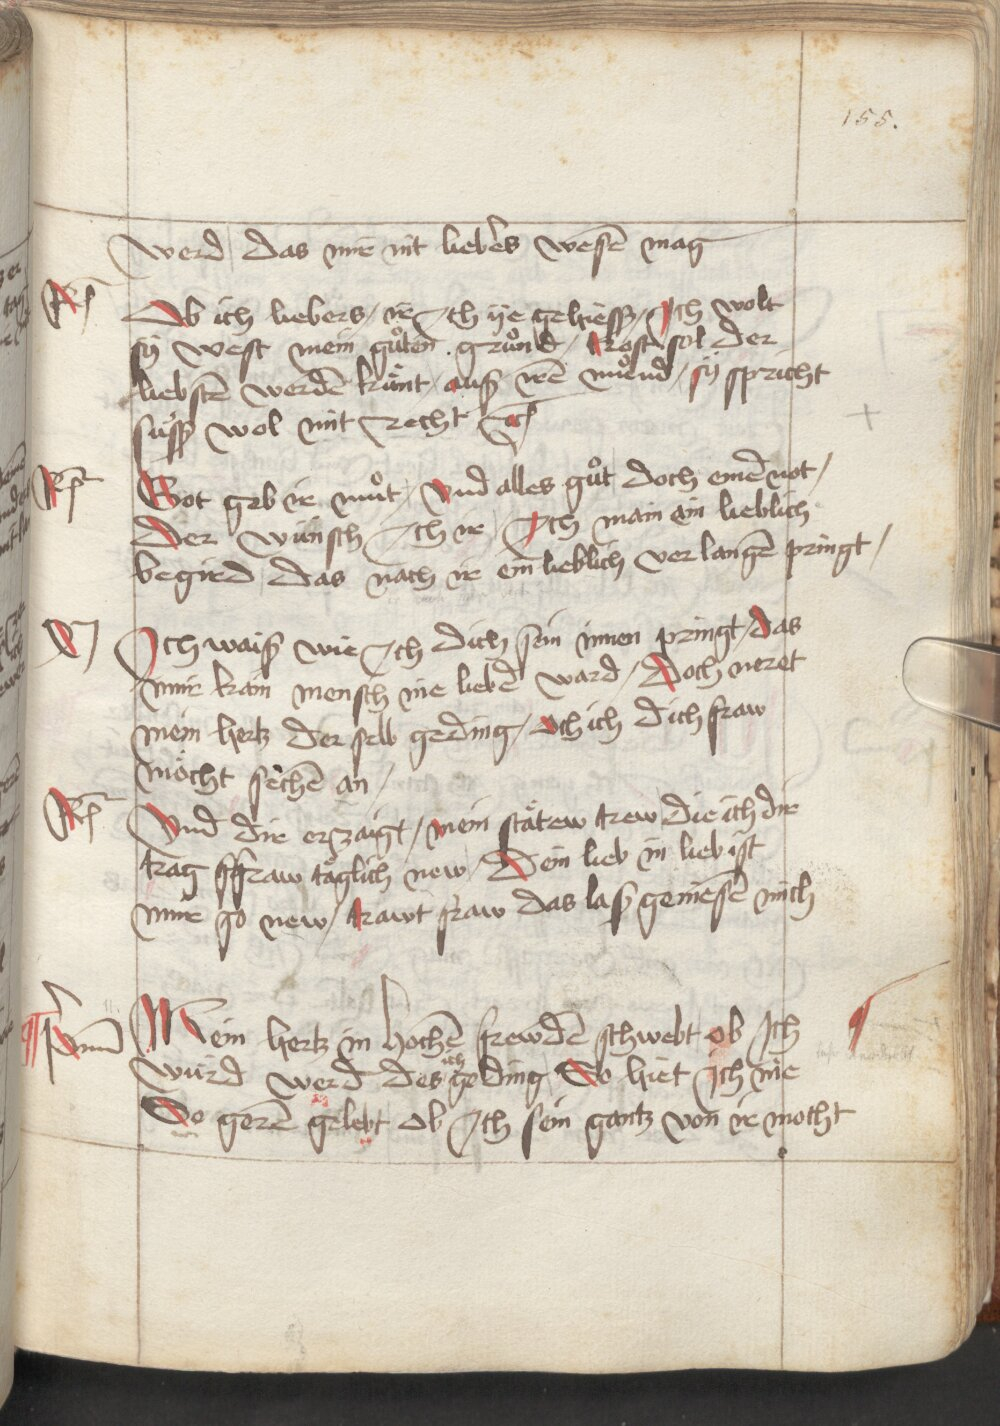 155.
werd / das mir nit liebers wesn̄ mag
Rp̄
Ob ich liebers / ir Ich ye gehiess / Ich wolt
sy west mein gůten grůnd / trost sol der
liebstn̄ werdn̄ kunt / auß irē můnd / sÿ spricht
suss wol mit recht
Rp̄
Got geb ir můt / Vnd alles gůt doch eins not /
Der wünsch Ich ir / Ich main ain lieblich
begird / das nach ir ein lieblich verlangn̄ pringt /
Ich waiß wie Ich dich sein innen pringt / das
mir kain mensch nie liebr̄ ward / Doch neret
mein hertz der selb geding / ob ich dich fraw
möcht sechn̄ an /
Rp̄
Vnd dir erzaigt / mein stätew trew die ich dir
trag ffraw täglich new / Dein lieb in lieb ist
mir so new / trawt fraw das laß geniesn̄ mich
Mein hertz in hochn̄ frewdn̄ schwebt ob Ich
ich
wurd werd des geding / So hiet Ich nie
So gern̄ gelebt ob Ich sein gantz von ir mocht